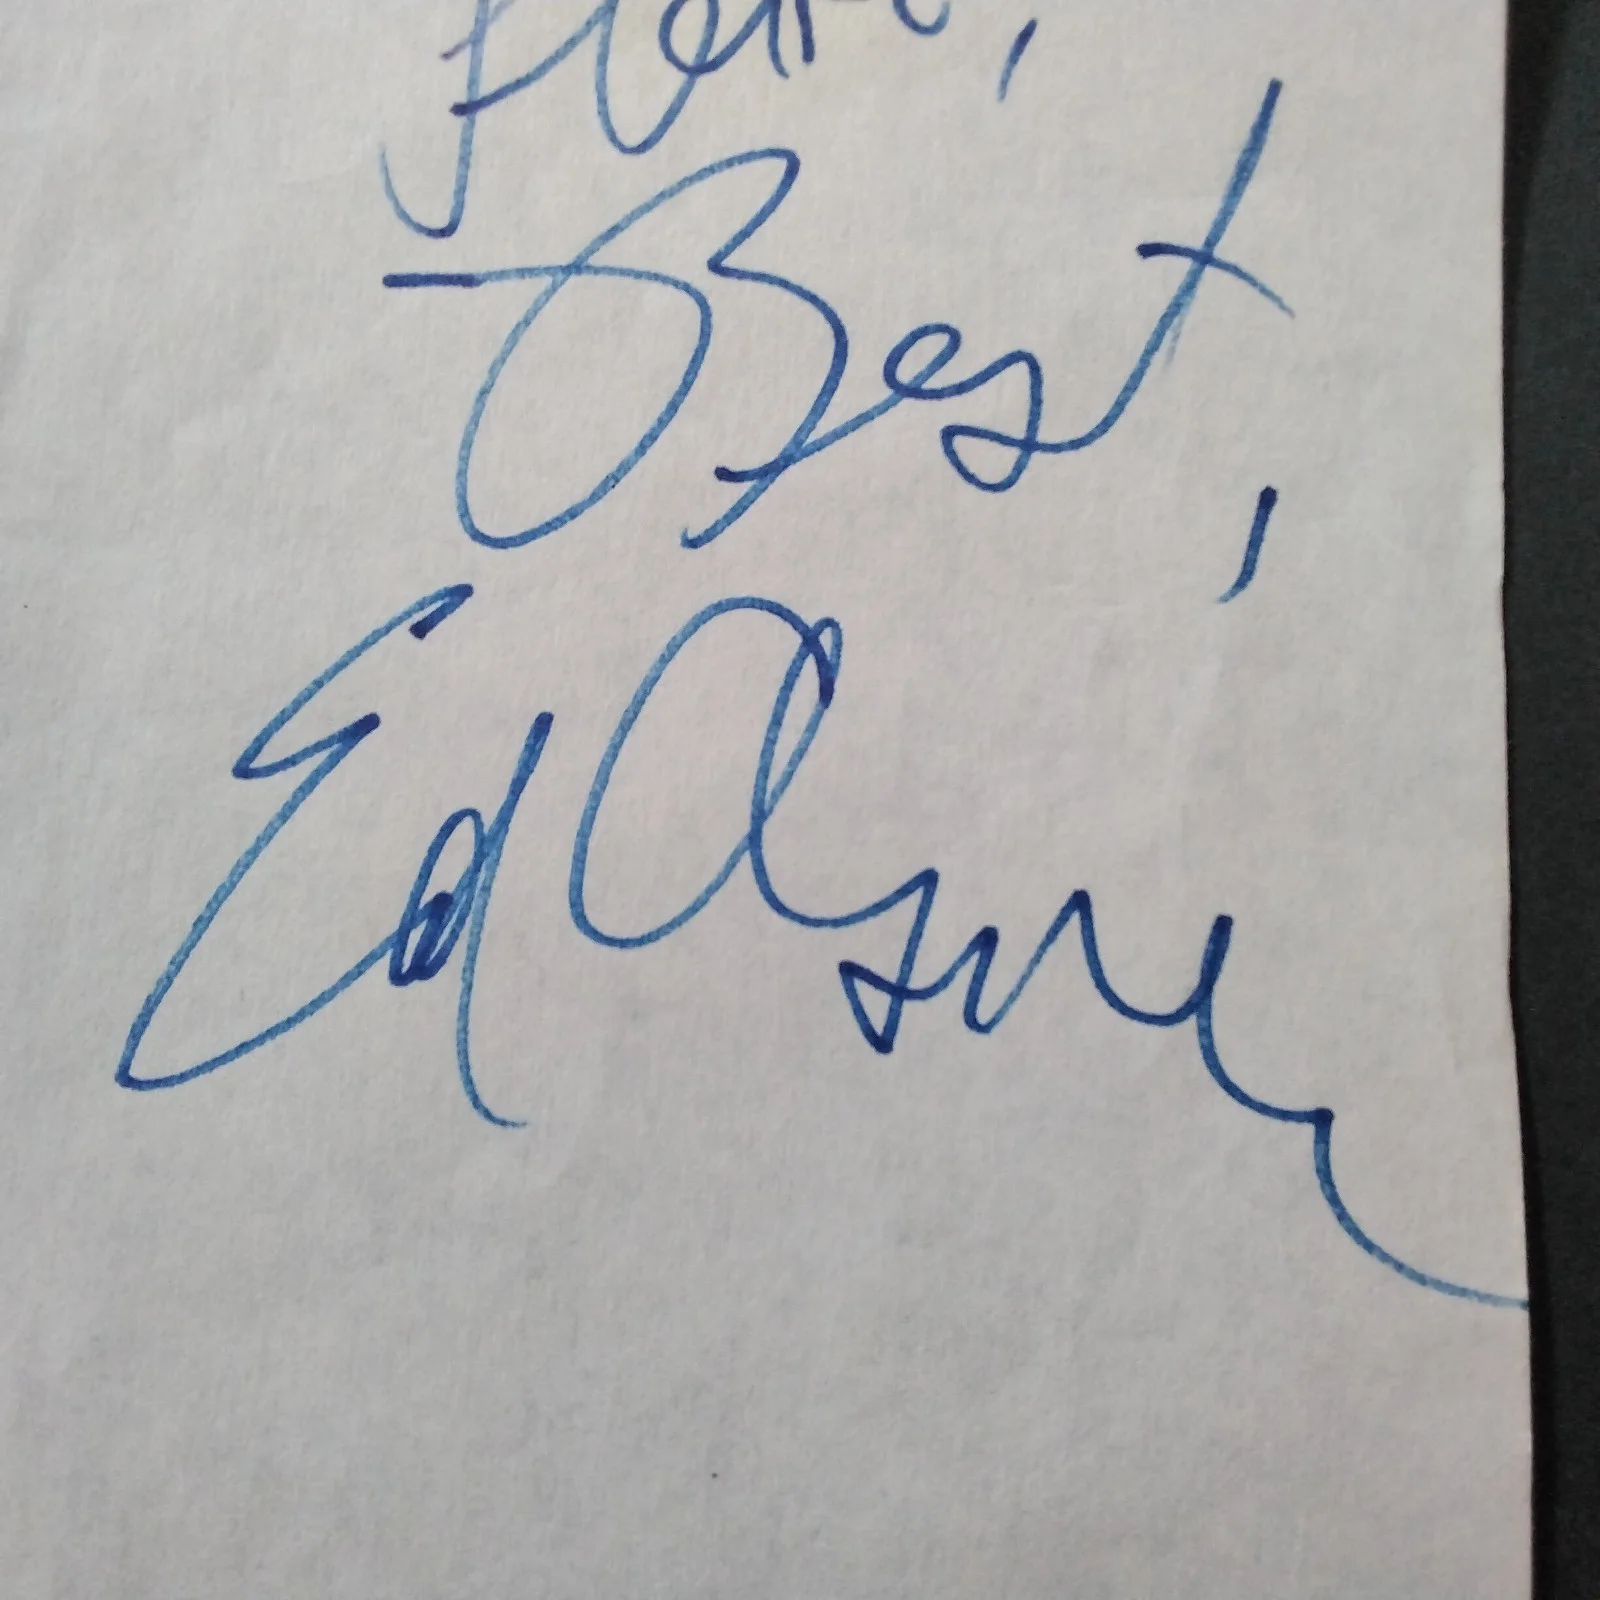 Best,
Ed Asner